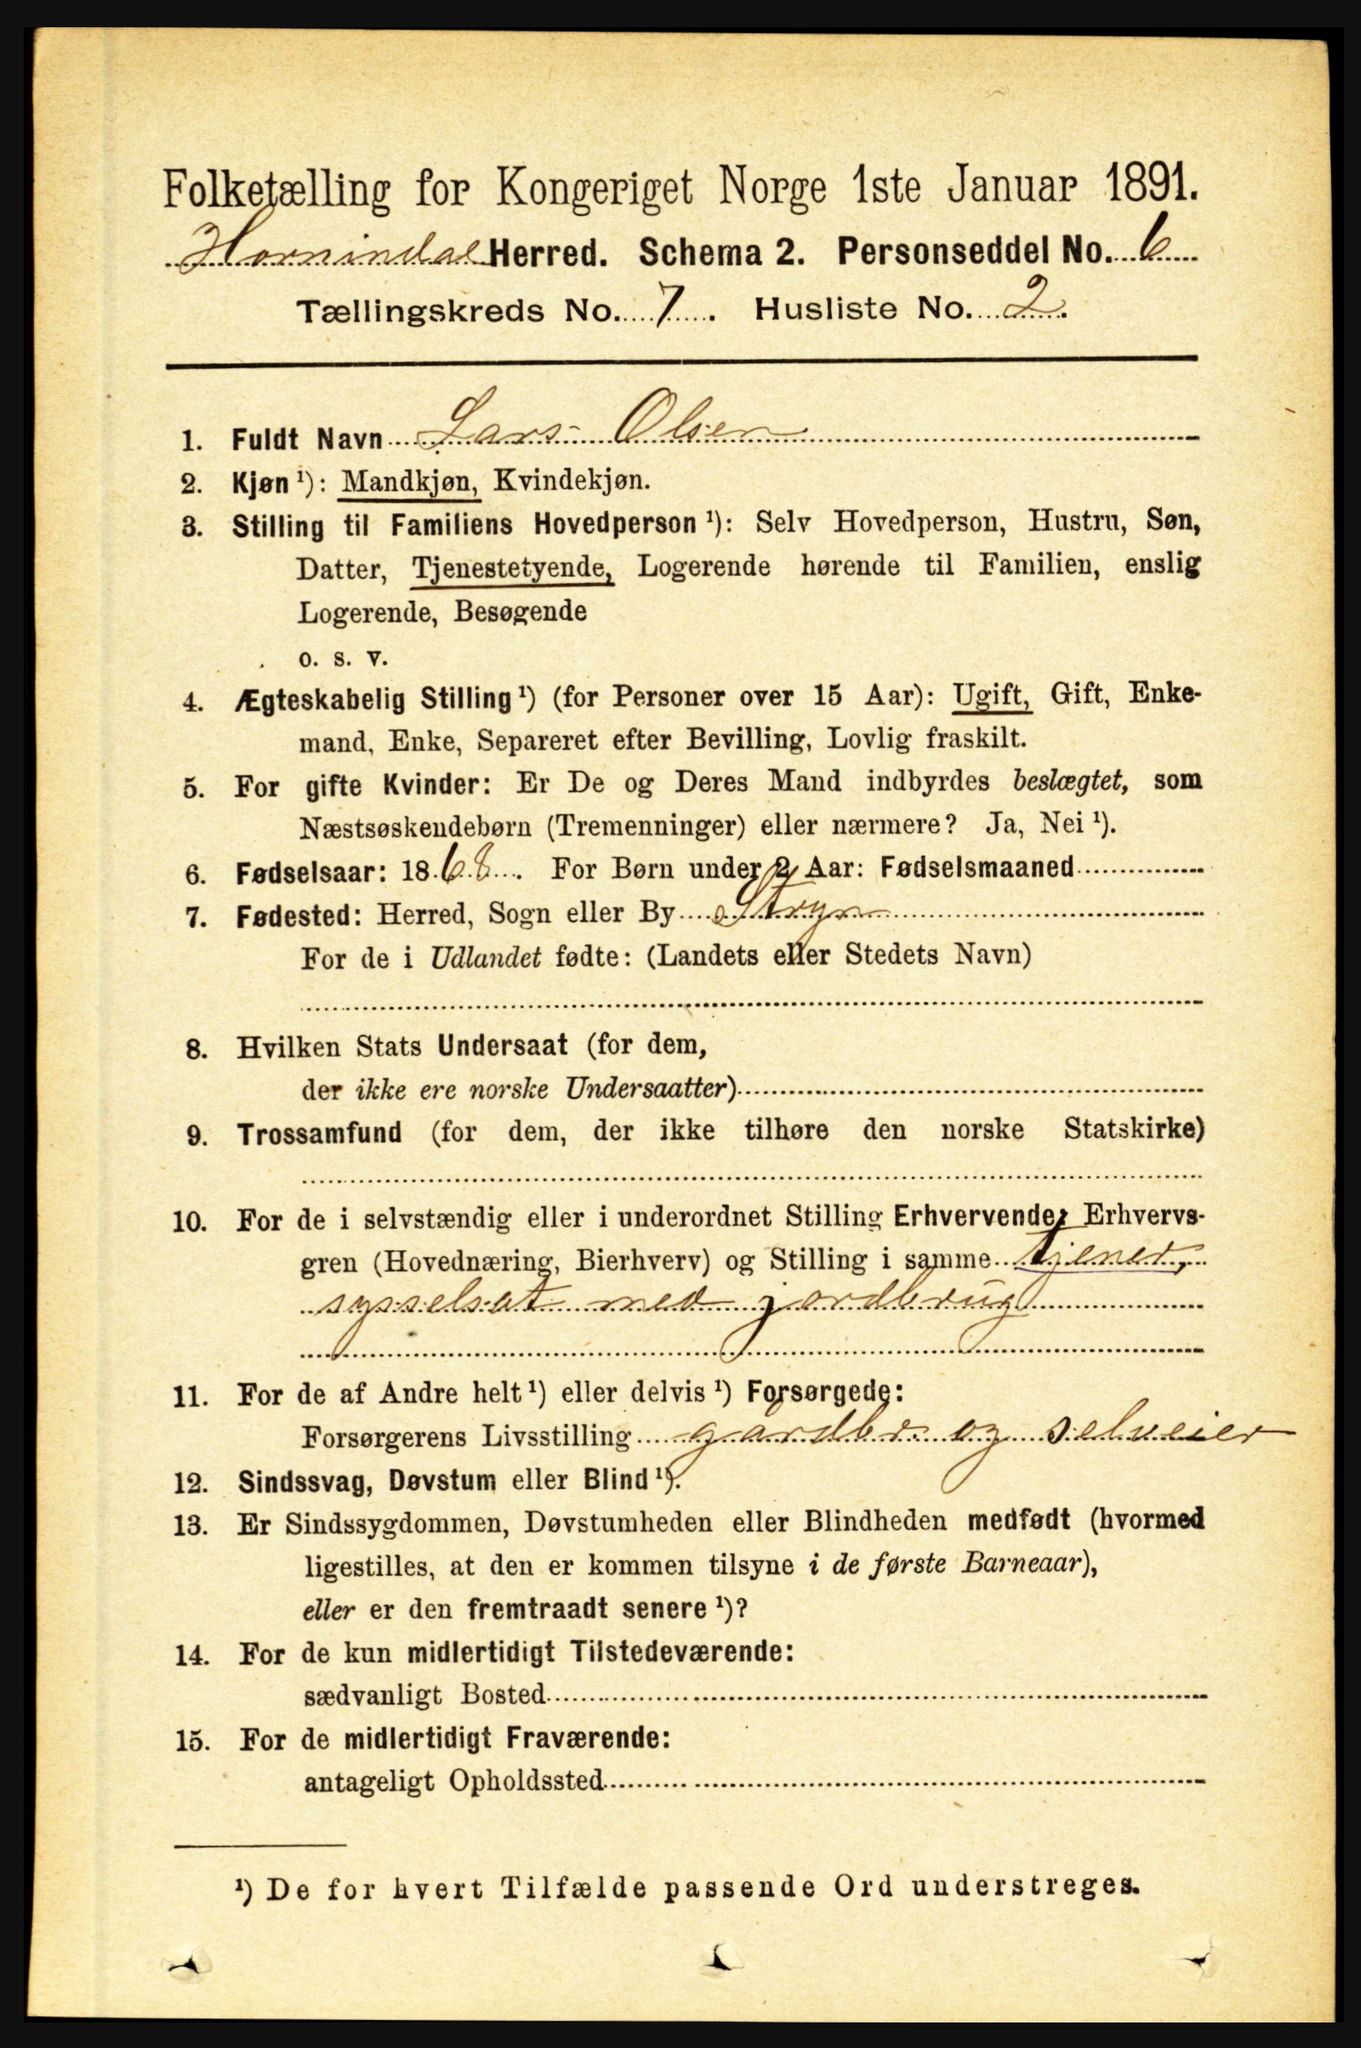 Folketælling for Kongeriget Norge 1ste Januar 1891.
Hornindal Herred. Schema 2. Personseddel No. 6
Tællingskreds No. 7. Husliste No. 2.
1. Fuldt Navn Lars Olsen
2. Kjøn ¹): Mandkjøn, Kvindekjøn.
3. Stilling til Familiens Hovedperson ¹): Selv Hovedperson, Hustru, Søn,
Datter, Tjenestetyende, Logerende hørende til Familien, enslig
Logerende, Besøgende
o. s. v.
4. Ægteskabelig Stilling ¹) (for Personer over 15 Aar): Ugift, Gift, Enke-
mand, Enke, Separeret efter Bevilling, Lovlig fraskilt.
5. For gifte Kvinder: Er De og Deres Mand indbyrdes beslægtet, som
Næstsøskendebørn (Tremenninger) eller nærmere? Ja, Nei ¹).
6. Fødselsaar: 1868. For Børn under 2 Aar: Fødselsmaaned
7. Fødested: Herred, Sogn eller By Stryn
For de i Udlandet fødte: (Landets eller Stedets Navn)
8. Hvilken Stats Undersaat (for dem,
der ikke ere norske Undersaatter)
9. Trossamfund (for dem, der ikke tilhøre den norske Statskirke)
10. For de i selvstændig eller i underordnet Stilling Erhvervende, Erhvervs-
gren (Hovednæring, Bierhverv) og Stilling i samme tjener,
sysselsat med jordbrug
11. For de af Andre helt ¹) eller delvis ¹) Forsørgede:
Forsørgerens Livsstilling gårdbr. og selveier
12. Sindssvag, Døvstum eller Blind ¹).
13. Er Sindssygdommen, Døvstumheden eller Blindheden medfødt (hvormed
ligestilles, at den er kommen tilsyne i de første Barneaar),
eller er den fremtraadt senere ¹)?
14. For de kun midlertidigt Tilstedeværende:
sædvanligt Bosted
15. For de midlertidigt Fraværende:
antageligt Opholdssted
¹) De for hvert Tilfælde passende Ord understreges.